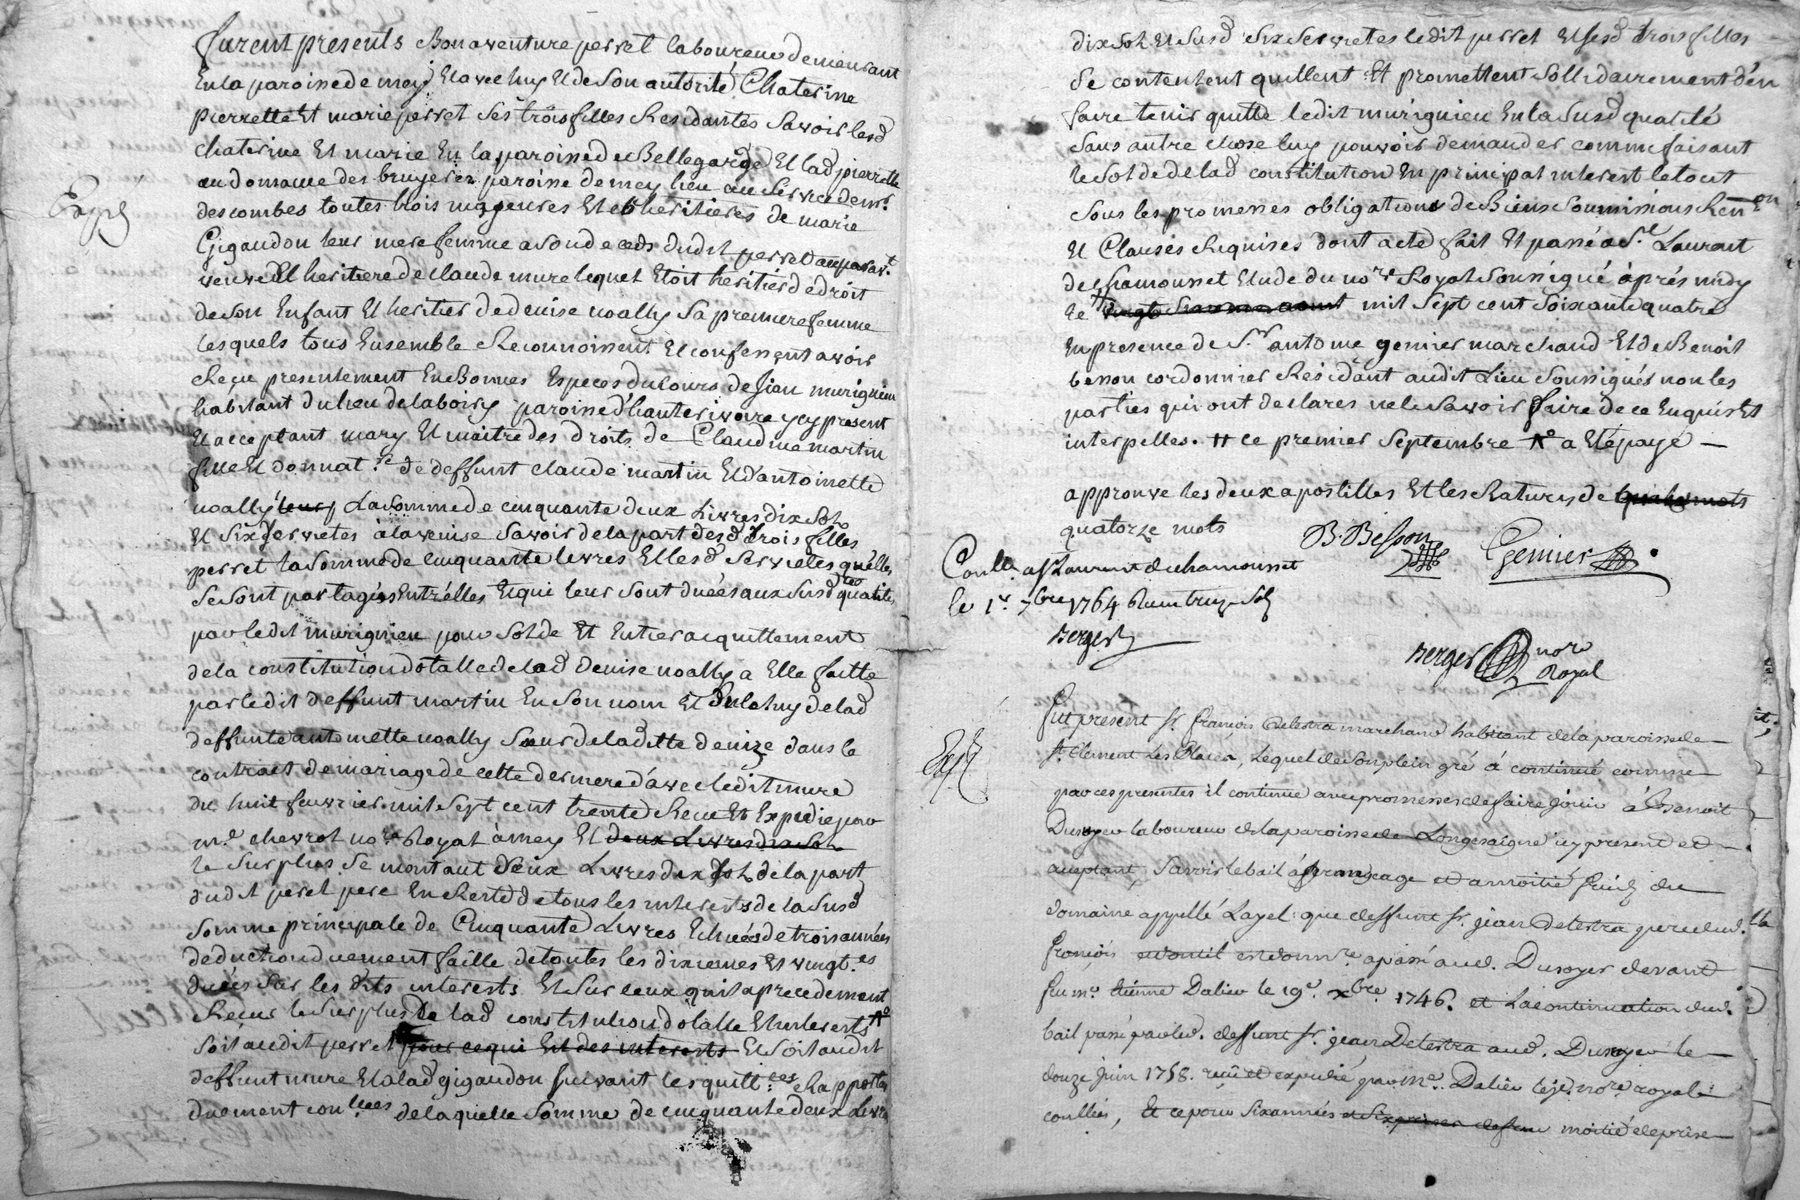 furent presents Bonaventure perret laboureur demeurant
En la paroisse de meys Et avec luy Et de Son autorité Chaterine
pierrette Et marie perret Ses trois filles Residantes Savoir lesd
chaterine Et marie En la paroisse de Bellegarde Et lad pierrette
au domaine des bruyeres paroisse de mey lieu au Service de mr.
descombes toutes trois majeures Et coheritieres de marie
Expé
Gigaudon leur mere femme a Son deceds dudit perret auparavt.
veuve Et heritiere de Claude mure lequel Etoit heritier de droit
de Son Enfant Et heritier de denise noally Sa premiere femme
Lesquels tous Ensemble Reconnoissent Et confessent avoir
Reçu presentement En Bonnes Especes du Cours de Jean murignieu
habitant du lieu de laboiry paroisse d'hauterivoire y cy present
Et acceptant mary Et maitre des droits de Claudine martin
fille Et donnatre. de deffunt claude martin Et d'antoinette
noally La Somme de cinquante deux Livres dix Sols
Et Six Serviettes a la venise Savoir de la part desd trois filles
perret la Somme de cinquante livres Et lesd Serviettes qu'elles
Se Sont partagées Entr'elles Et qui leur Sont duées aux Susd qualités
par ledit murignieu pour Solde Et Entier acquittement
de la constitution dotalle de lad denise noally a Elle faitte
par ledit deffunt martin En Son nom Et de luy de lad
deffunte antoinette noally Soeur de laditte denize dans le
contract de mariage de cette derniere d'avec ledit mure
du huit feuvrier mil Sept cent trente Receu Et Expedié par
me. chevrot nore. Royal à mey Et deux Livres dix Sols
le Surplus Se montant deux Livres dix Sols de la part
dudit perret pere En Reste de tous les interests de la Susd
Somme principale de Cinquante Livres Echues de trois années
deduction duement faitte de toutes les dixiemes Et vingt.es
duées Sur les dits interests Et Sur ceux qu'il a precedement
Receu le Surplus de lad constitution dotalle Et interests
Soit audit perret pour ce qui Est des interests Et Soit audit
deffunt mure Et a lad gigaudon Suivant les quitt.ces Rapportées
duement conllées de laquelle Somme de cinquante deux Livres
dix Sols Et Susd Six Serviettes ledit perret Et Sesd trois filles
Se contentent quittent Et promettent Sollidairement d'en
faire tenir quitte ledit murignieu En la Susd qualité
Sans autre chose luy pouvoir demander comme faisant
le Solde de lad constitution En principal interest le tout
Sous les promesses obligations de Biens Soumissions Renon
Et Clauses Requises dont acte fait Et passé a St. Laurent
de chamousset Etude du nore Royal Soussigné après midy
Le vingt Six aoust mil Sept cent Soixante quatre
En presence de Sr. antoine genier marchand Et de Benoit
besson cordonnier Residant audit Lieu Soussignés non les
parties qui ont declarés ne le Savoir faire de ce Enquis Et
interpelles. # ce premier Septembre # a Eté payé —
approuve les deux apostilles Et les Ratures de
quatorze mots
B. Besson Genier
Conllé a St Laurent de chamousset
le 1er 7bre 1764 Sols
Berger
Berger nore Royal
Fut present Sr. françois Delestra marchand habitant de la paroisse de
St. Clement Les Places, Lequel de Son plein gré à continué comme
Expé
par ces presentes il continue avec promesses de faire Jouir à Benoit
Dusoyer laboureur de la paroisse de Longesaigne icy present et
acceptant, Savoir le bail à grangeage et à moitié fruit du
domaine appellé Layel que deffunt Sr. jean Delestra pere dud.
françois a passé aud. Dusoyer devant
feu me. Etienne Dalier le 19e. xbre. 1746. et La continuation dud.
bail passé par led. deffunt Sr. jean Delestra aud. Dusoyer le
douze Juin 1758. reçu et expedié par me. Dalier nore. royal
coullies, Et ce pour Six années moitié de prise